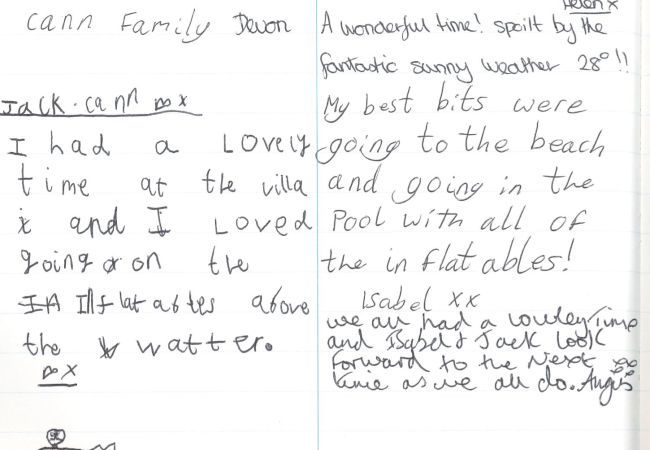 Cann Family Devon
Jack. cann ∞ x
I had a Lovely
time at the villa
and I Loved
going on the
Inflatables above
the watter.
∞ x
Helen x
A wonderful time! spoilt by the
fantastic sunny weather 28°!!
My best bits were
going to the beach
and going in the
Pool with all of
the inflatables!
Isabel xx
we all had a lovley Time
and Isabel & Jack look
forward to the Next
time as we all do. Angus